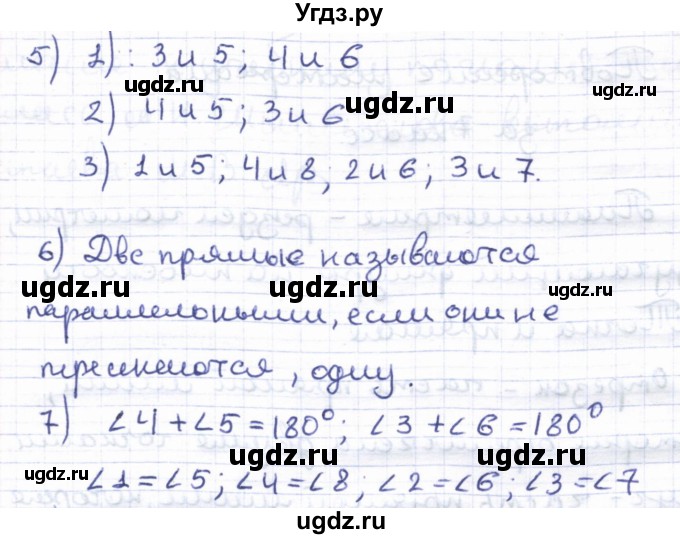 Угдз.ру
5) 1) : 3 и 5 ; 4 и 6
ugdz.ru ugdz.ru
2) 4 и 5 ; 3 и 6
ugdz.ru ugdz.ru
3) 1 и 5 ; 4 и 8 , 2 и 6 ; 3 и 7.
ugdz.ru
6) Две прямые называются
ugdz.ru ugdz.ru
параллельными, если они не
ugdz.ru
пересекаются, одну.
7) ∠4 + ∠5 = 180°; ∠3 + ∠6 = 180°
ugdz.ru ugdz.ru
∠1 = ∠5; ∠4 = ∠8 ; ∠2 = ∠6 ; ∠3 = ∠7
ugdz.ru ugdz.ru
ugdz.ru